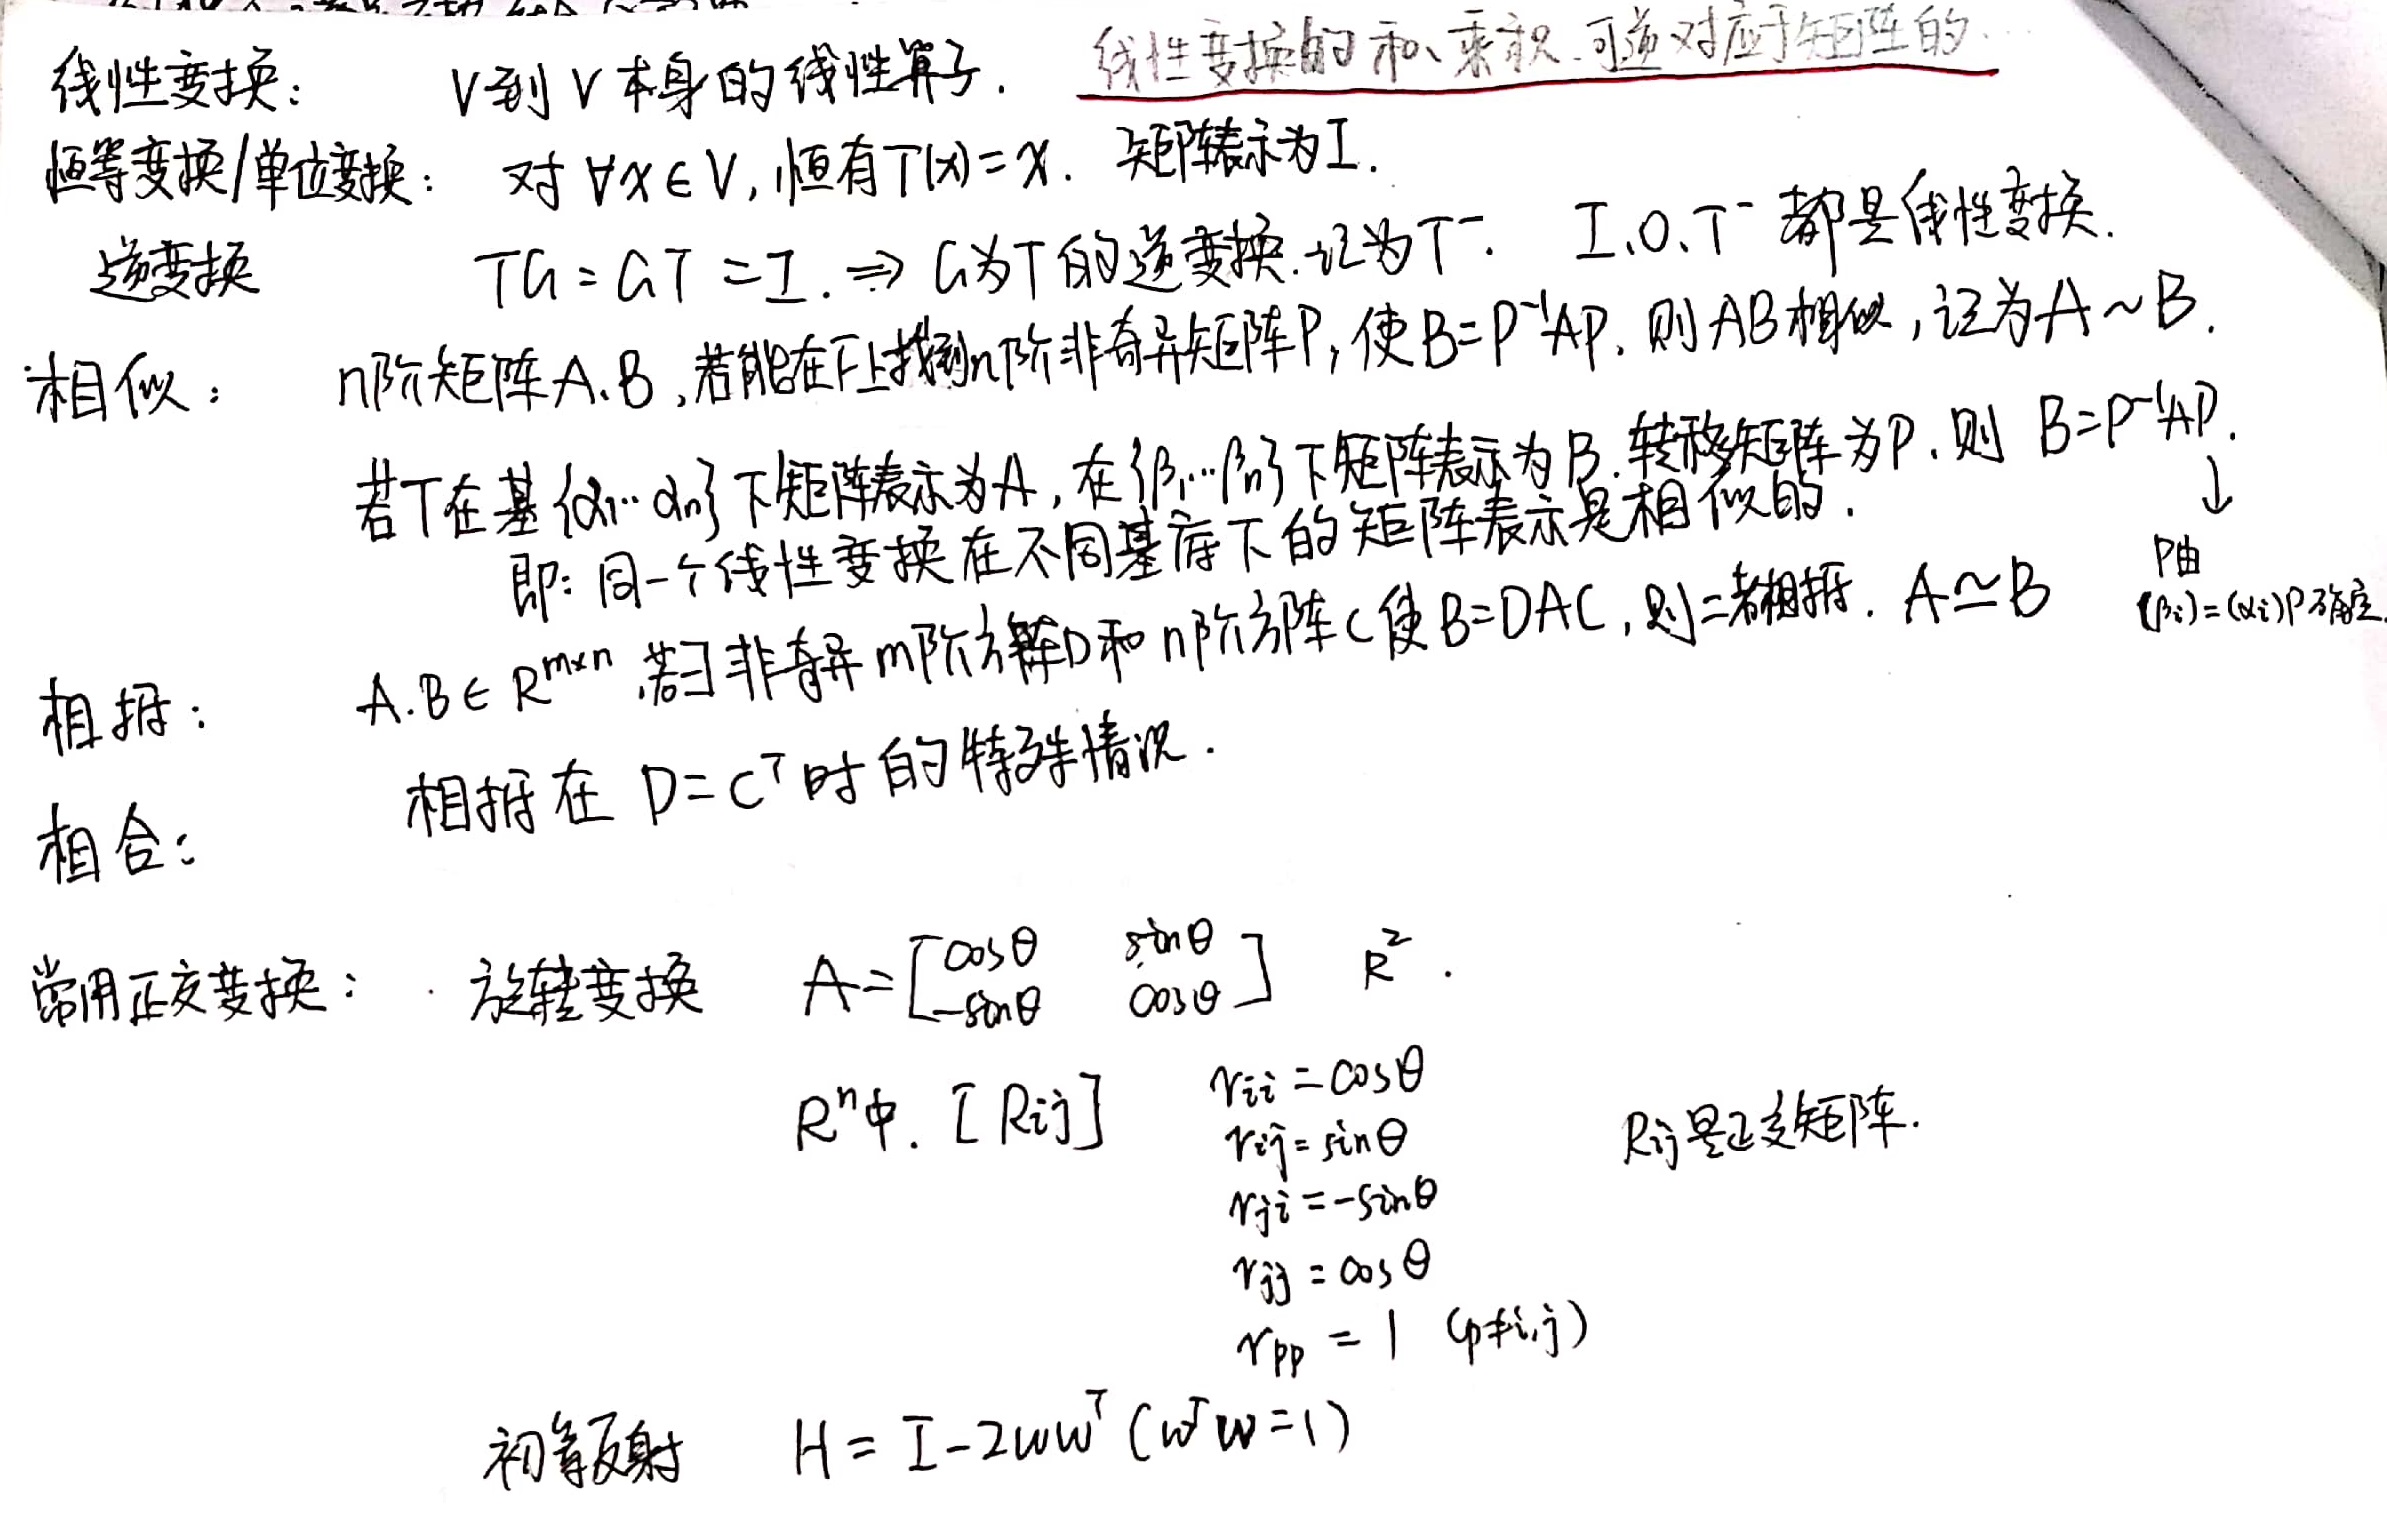 线性变换： V到V本身的线性算子. 线性变换的和、乘积、可逆对应于矩阵的…
恒等变换/单位变换： 对∀x∈V,恒有T(x)=x. 矩阵表示为I.
逆变换 TG=GT=I.⇒G为T的逆变换.记为T⁻. I.0.T⁻都是线性变换.
相似： n阶矩阵A.B,若能在F上找到n阶非奇异矩阵P,使B=P⁻¹AP.则AB相似,记为A~B.
若T在基{α₁…αn}下矩阵表示为A,在{β₁…βn}下矩阵表示为B.转移矩阵为P.则 B=P⁻¹AP.
↓
即:同一个线性变换在不同基底下的矩阵表示是相似的.
P由
(βi)=(αi)P确定.
相抵： A.B∈R^{m×n},若∃非奇异m阶方阵D和n阶方阵C使B=DAC,则二者相抵. A≃B
相合： 相抵在 D=Cᵀ时的特殊情况.
常用正交变换： 旋转变换 A=[cosθ sinθ
-sinθ cosθ] R².
Rⁿ中. [Rij] rii=cosθ
rij=sinθ Rij是正交矩阵.
rji=-sinθ
rjj=cosθ
rpp=1 (p≠i,j)
初等反射 H=I-2wwᵀ(wᵀw=1)